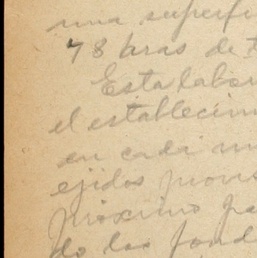 una superfi
48 hras de t
Esta labor
el establecim
en cada mu
ejidos provis
próximo pa
do los fond